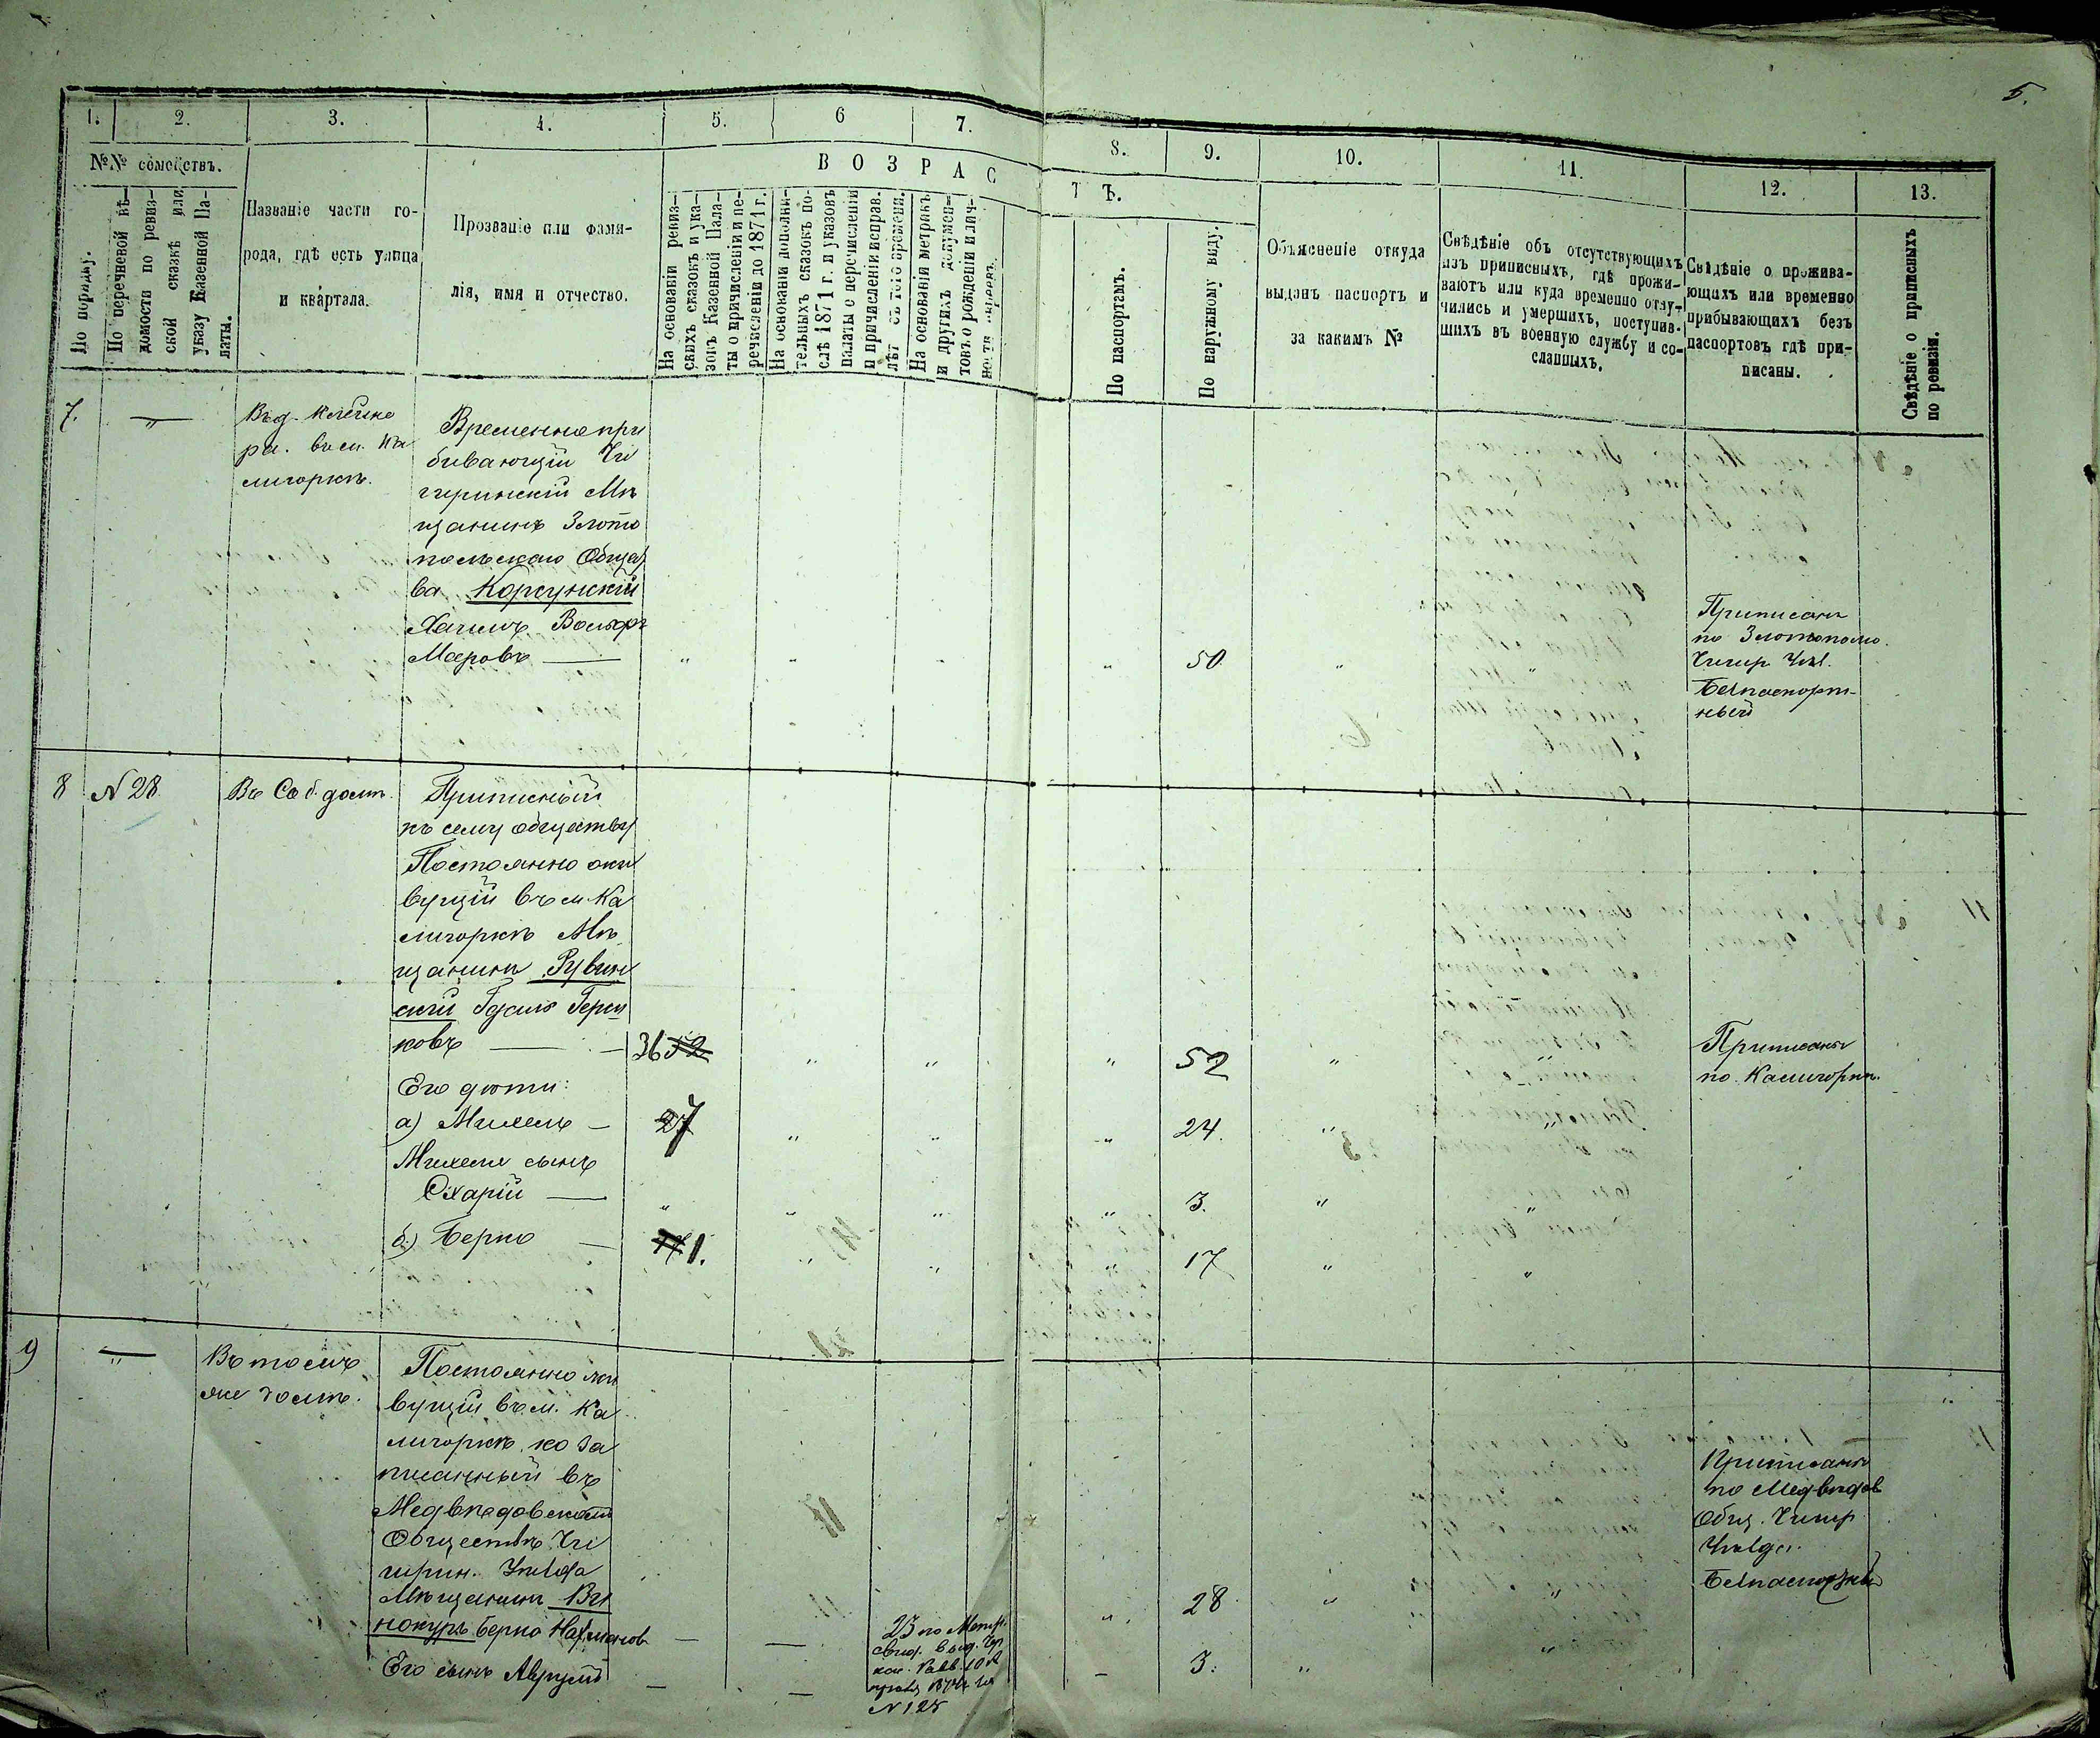 5.
1. 2. 3. 4. 5. 6 7. 8. 9. 10. 11. 12. 13.
№№ семействъ.
ВОЗРАС
ТЪ.
По порядку.
По перечневой вѣ-
домости по ревиз-
ской сказкѣ или
указу Казенной Па-
латы.
Названіе части го-
рода, гдѣ есть улица
и квартала.
Прозваніе или фами-
лія, имя и отчество.
На основаніи ревиз-
скихъ сказокъ и ука-
зокъ Казенной Пала-
ты о причисленіи и пе-
речисленіи до 1871 г.
На основаніи дополни-
тельныхъ сказокъ по-
слѣ 1871 г. и указовъ
палаты о перечисленіи
и причисленіи исправ.
лѣт съ того времени.
На основаніи метрикъ
и другихъ докумен-
товъ о рожденіи и лич-
ности евреевъ.
По паспортамъ.
По наружному виду.
Объясненіе откуда
выданъ паспортъ и
за какимъ №
Свѣдѣніе объ отсутствующихъ
изъ приписныхъ, гдѣ прожи-
ваютъ или куда временно отлу-
чились и умершихъ, поступив-
шихъ въ военную службу и со-
сланныхъ.
Свѣдѣніе о прожива-
ющихъ или временно
прибывающихъ безъ
паспортовъ гдѣ при-
писаны.
Свѣдѣніе о приписныхъ
по ревизіи.
7. — "
Въ д. Клейне
ра. въ м. Ка
лигоркѣ.
Временно при
бивающій Чи
гиринскій Мѣ
щанинъ Злото
польскаго Общес
ва Корсунскій
Хаимъ Вольфъ
Мееровъ — " " " 50 " "
Приписанъ
по Златополю.
Чигир Уѣз.
Безпаспорт-
ный
8 N 28 Въ Соб. домѣ.
Приписный
къ сему обществу
Постоянно жи
вущій въ м. Ка
лигоркѣ Мѣ
щанинъ Рувин
скій Гдаль Герш
ковъ — 36 52 " " " 52 " "
Приписанъ
по Калигоркѣ.
Его дѣти:
а) Михель — 27 " " " 24. " "
Михеля сынъ
Схарій — " " " " 3. " "
б) Берко — 1. " " " 17 " "
9 — "
Въ томъ
же домѣ.
Постоянно жи
вущій въ м. Ка
лигоркѣ, но за
писанный въ
Медвѣдовскомъ
Обществѣ Чи
гирин. Уѣзда
Мѣщанинъ Ви
нокуръ Берко Нахманов — — 
23 по Метр.
свид. выд.
10
N 125
" 28 " "
Приписанъ
по Медвѣдов
Общ. Чигир
Уѣзда.
Безпаспортный
Его сынъ Аврумъ — — – 3. " "